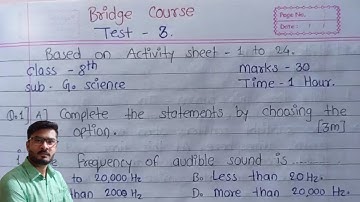 Bridge Course
Page No.
Date
Test - 8.
Based on Activity sheet - 1 to 24.
class - 8th
marks - 30
sub - G. science
Time - 1 Hour.
Q.1] A] Complete the statements by choosing the
option.
[3m]
frequency of audible sound is
to 20,000 Hz
B. Less than 20 Hz.
than 2000 Hz
D. more than 20,000 Hz.